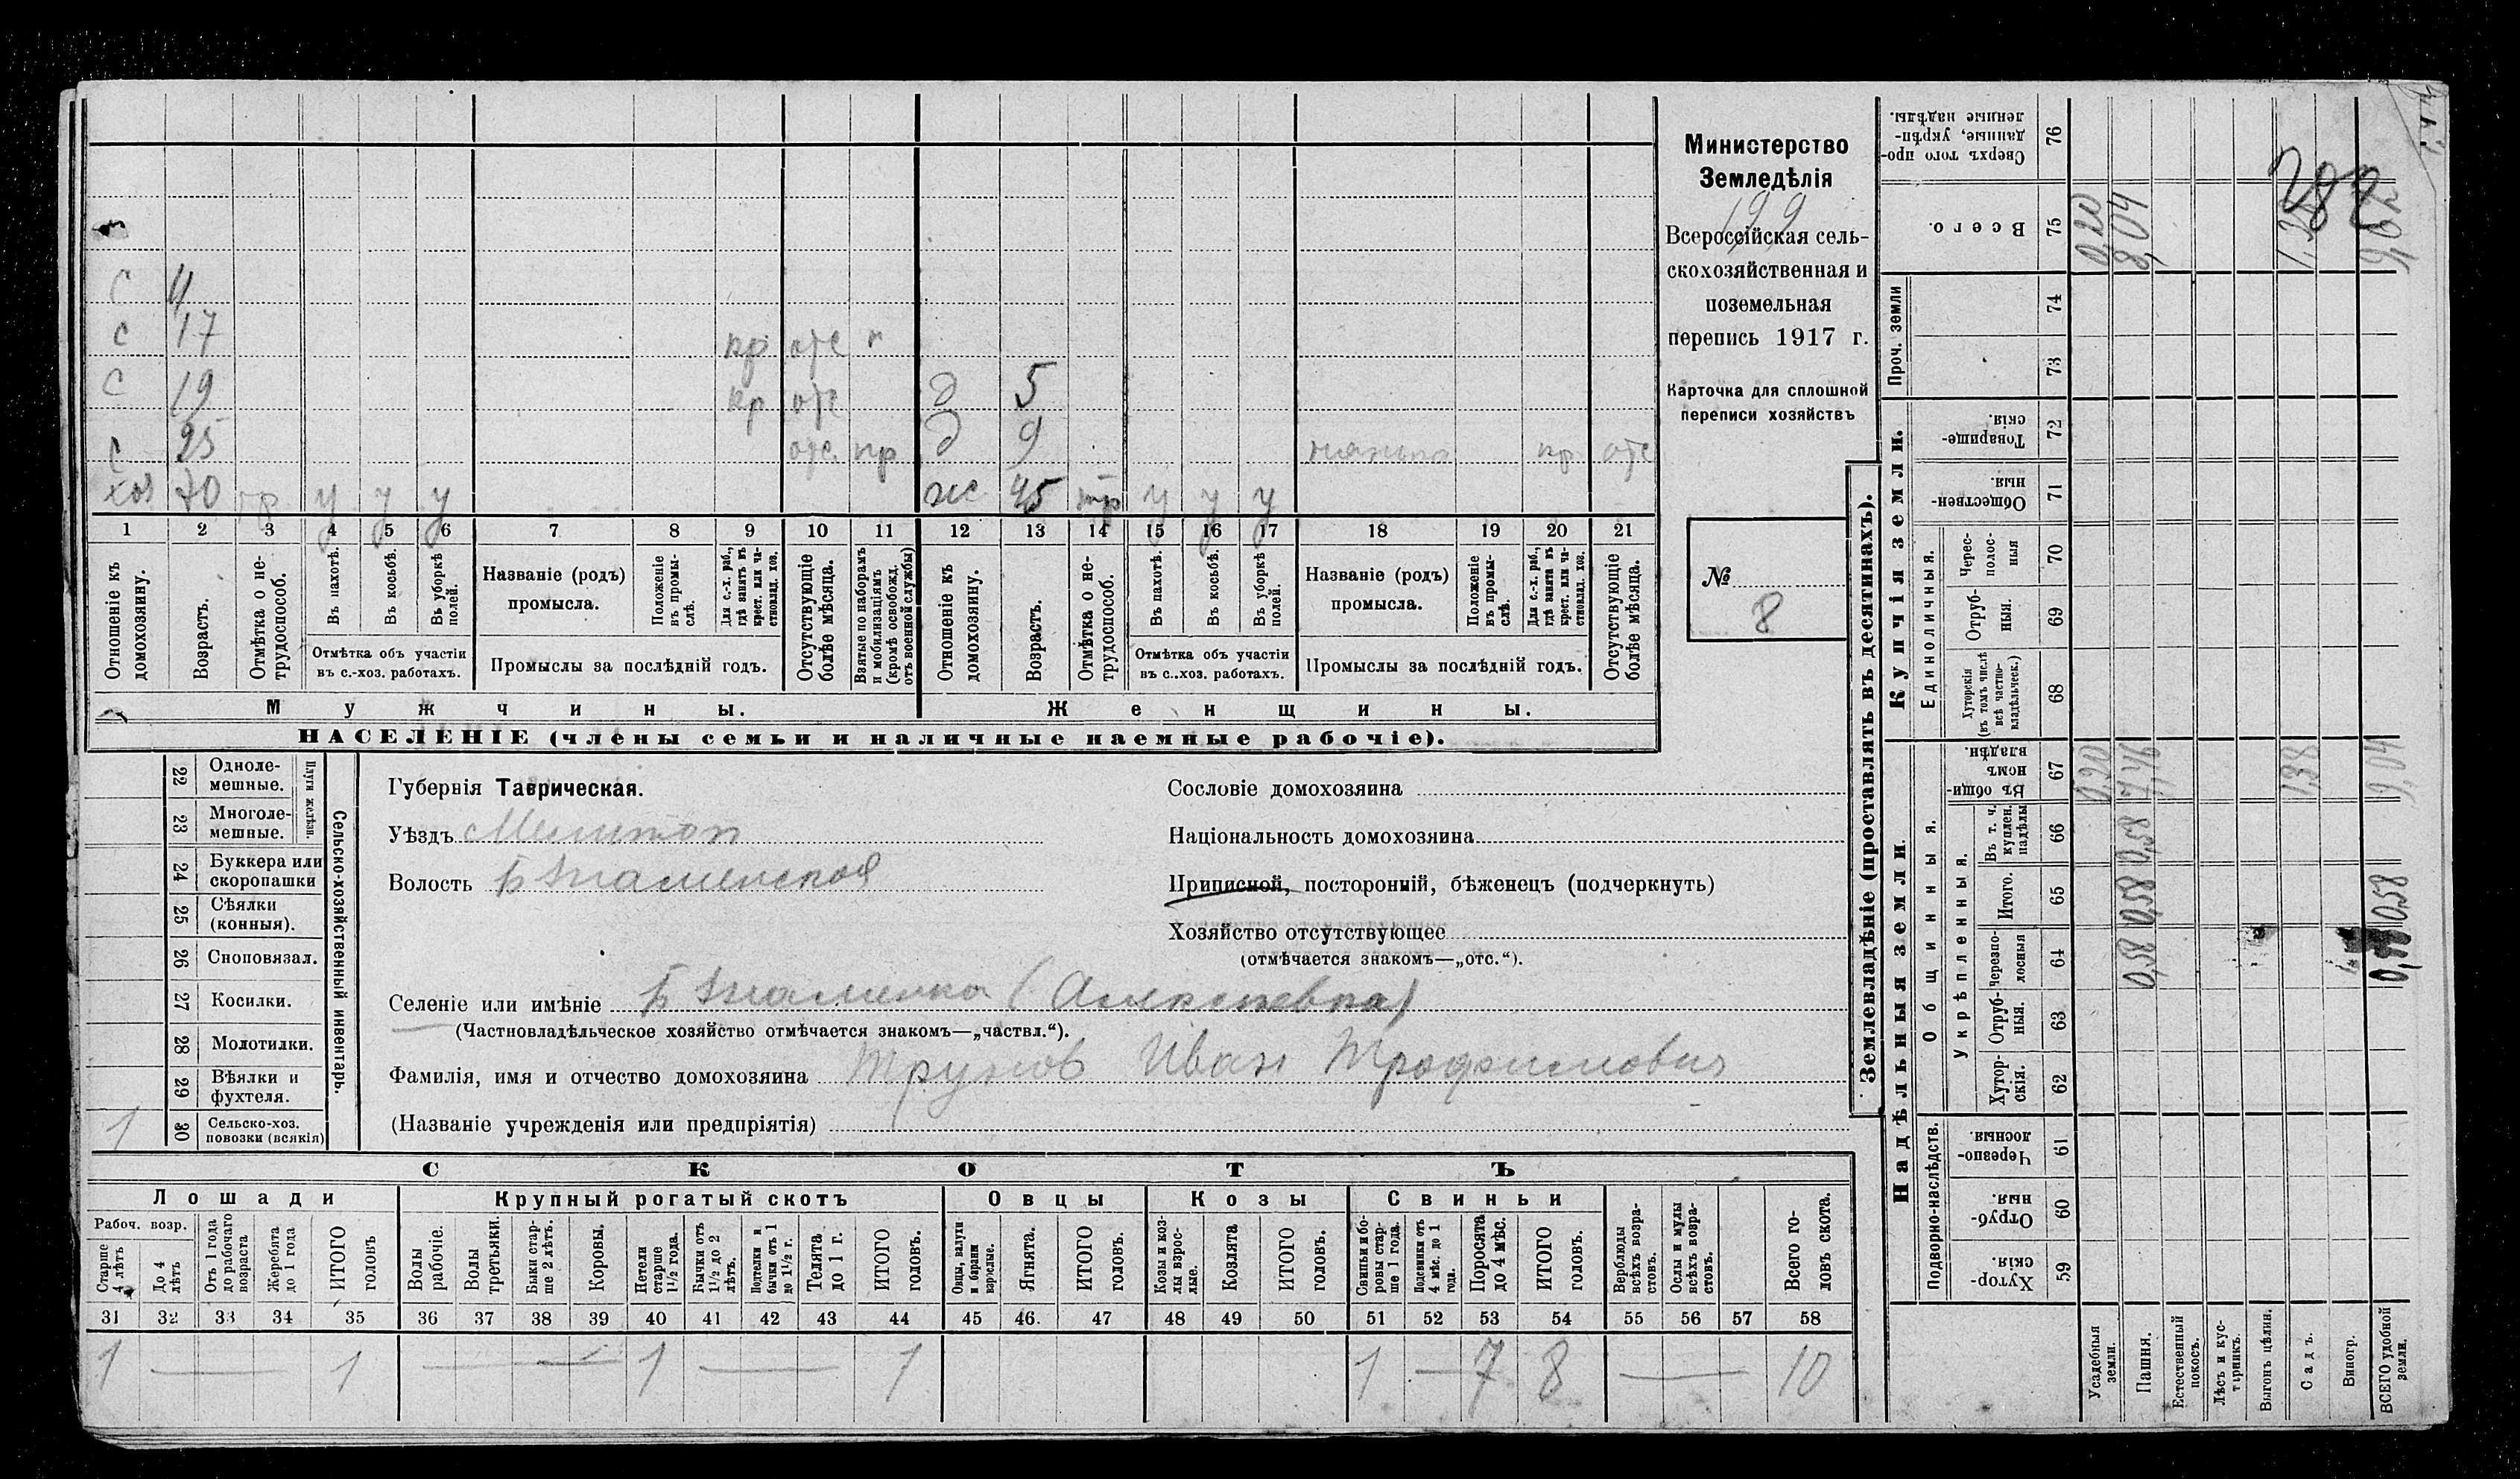 С 4
С 17 кр отс п
С 19 кр отс д 5
С 25 отс. пр д 9 кр отс
хоз 70 у у у ж 45 у у у
1 2 3 4 5 6 7 8 9 10 11 12 13 14 15 16 17 18 19 20 21
Отношеніе къ домохозяину.
Возрастъ.
Отмѣтка о нетрудоспособ.
Въ пахотѣ.
Въ косьбѣ.
Въ уборкѣ полей.
Отмѣтка объ участіи
въ с.-хоз. работахъ.
Названіе (родъ)
промысла.
Положеніе въ промыслѣ.
Для с.-х. раб., гдѣ занятъ въ крест. или частновлад. хоз.
Промыслы за послѣдній годъ.
Отсутствующіе болѣе мѣсяца.
Взятые по наборамъ и мобилизаціямъ (кромѣ освобожд. отъ военной службы)
Отношеніе къ домохозяину.
Возрастъ.
Отмѣтка о нетрудоспособ.
Въ пахотѣ.
Въ косьбѣ.
Въ уборкѣ полей.
Отмѣтка объ участіи
въ с..хоз. работахъ.
Названіе (родъ)
промысла.
Положеніе въ промыслѣ.
Для с.-х. раб., гдѣ занята въ крест. или частновлад. хоз.
Промыслы за послѣдній годъ.
Отсутствующіе болѣе мѣсяца.
Мужчины. Женщины.
НАСЕЛЕНІЕ (члены семьи и наличные наемные рабочіе).
Министерство
Земледѣлія
199
Всероссійская сель-
скохозяйственная и
поземельная
перепись 1917 г.
Карточка для сплошной
переписи хозяйствъ
№
8
Сельско-хозяйственный инвентарь.
Плуги желѣзн.
22 Одноле-
мешные.
23 Многоле-
мешные.
24 Буккера или
скоропашки
25 Сѣялки
(конныя).
26 Сноповязал.
27 Косилки.
28 Молотилки.
29 Вѣялки и
фухтеля.
1 30 Сельско-хоз.
повозки (всякія)
Губернія Таврическая.
Уѣздъ Мелитоп
Волость Б Знаменская
Селеніе или имѣніе Б Знаменка (Алексеевка)
(Частновладѣльческое хозяйство отмѣчается знакомъ—„частвл.“).
Фамилія, имя и отчество домохозяина Трунов Иван Трофимович
(Названіе учрежденія или предпріятія)
Сословіе домохозяина
Національность домохозяина
Приписной, посторонній, бѣженецъ (подчеркнуть)
Хозяйство отсутствующее
(отмѣчается знакомъ—„отс.“).
СКОТЪ
Лошади Крупный рогатый скотъ Овцы Козы Свиньи
Рабоч. возр.
Старше 4 лѣтъ
До 4 лѣтъ
Отъ 1 года до рабочаго возраста
Жеребята до 1 года
ИТОГО головъ
Волы рабочіе.
Волы третьяки.
Быки старше 2 лѣтъ.
Коровы.
Нетели старше 1½ года.
Бычки отъ 1½ до 2 лѣтъ.
Подтелки и бычки отъ 1 до 1½ г.
Телята до 1 г.
ИТОГО головъ.
Овцы, валухи и бараны взрослые.
Ягнята.
ИТОГО головъ.
Козы и козлы взрослые.
Козлята
ИТОГО головъ.
Свиньи и боровы старше 1 года.
Подсвинки отъ 4 мѣс. до 1 года.
Поросята до 4 мѣс.
ИТОГО головъ.
Верблюды всѣхъ возрастовъ.
Ослы и мулы всѣхъ возрастовъ.
Всего головъ скота.
31 32 33 34 35 36 37 38 39 40 41 42 43 44 45 46. 47 48 49 50 51 52 53 54 55 56 57 58
1 — 1 — 1 — 1 1 — 7 8 — 10
Землевладѣніе (проставлять въ десятинахъ).
Надѣльныя земли. Купчія земли. Проч. земли
Подворно-наслѣдств.
Общинныя.
Укрѣпленныя.
Единоличныя.
Сверхъ того проданные, укрѣпленные надѣлы. 76
Всего. 75
74
73
Товарищескія 72
Общественныя. 71
Чересполосныя 70
Отрубныя. 69
Хуторскія (въ томъ числѣ всѣ частновладѣльческ.) 68
Въ общинномъ владѣн. 67
Въ т. ч. куплен. надѣлы 66
Итого. 65
Черезполосныя 64
Отрубныя. 63
Хуторскія. 62
Черезполосныя. 61
Отрубныя. 60
Хуторскія 59
Усадебныя земли. 0,20 0,20
Пашня. 0,58 0,58 0,58 7,46 8,04
Естественный покосъ.
Лѣсъ и кустарникъ.
Выгонъ цѣлин.
Садъ. 1,38 1,38
Виногр.
ВСЕГО удобной земли. 0,58 0,58 9,04 9,62